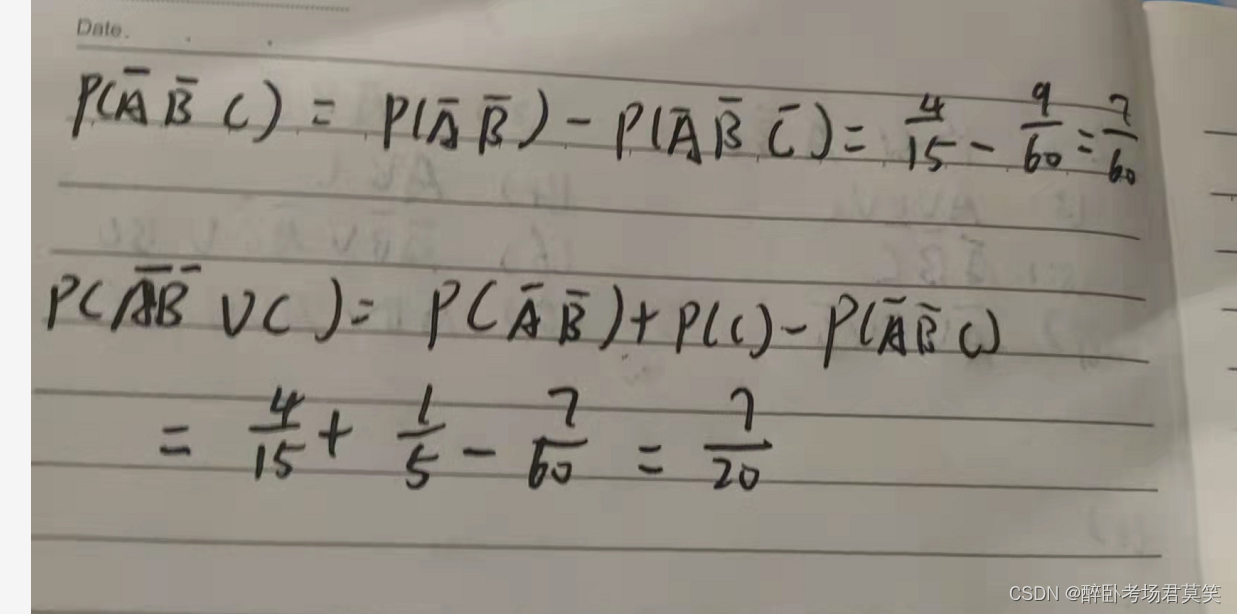 Date.
P(A̅ B̅ C) = P(A̅ B̅) - P(A̅ B̅ C̅) = 4/15 - 9/60 = 7/60
P(A̅B̅ ∪ C) = P(A̅ B̅) + P(C) - P(A̅ B̅ C)
= 4/15 + 1/5 - 7/60 = 7/20
CSDN @醉卧考场君莫笑